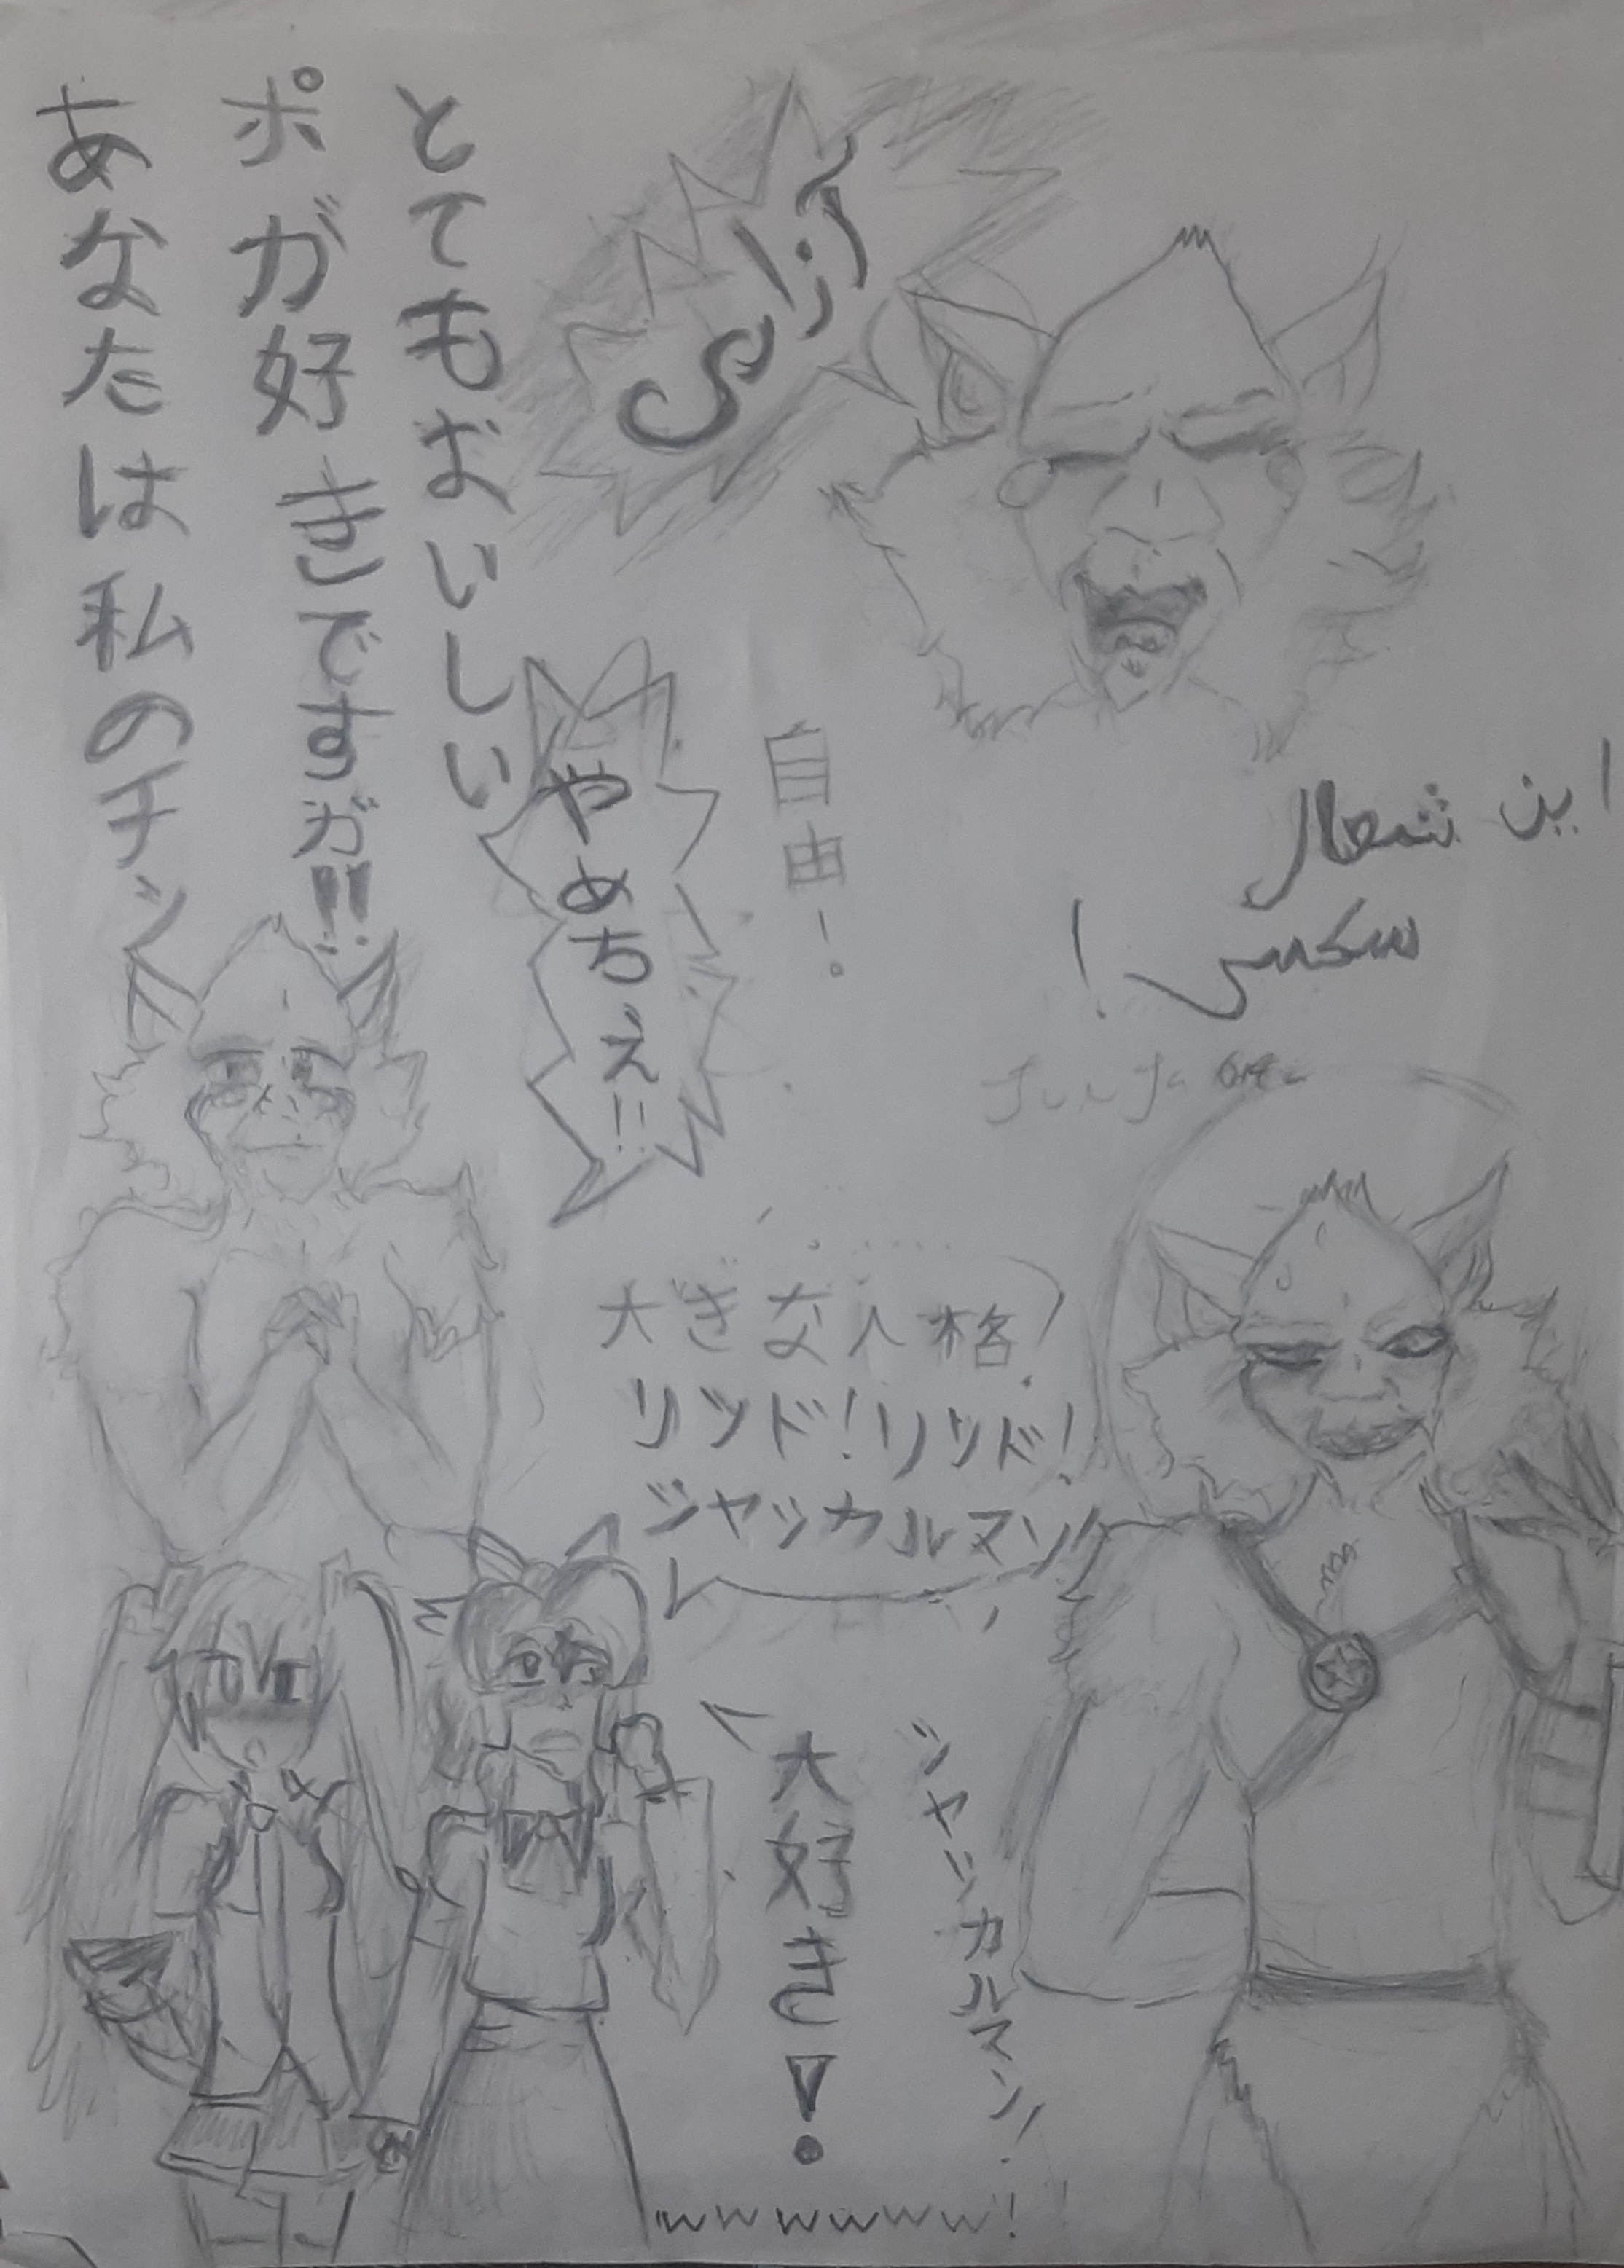 とてもおいしい
ポガ好きですガ!!
あなたは私のチン
やめちぇ!!
自由!
این شعار
سکسی!
大ぎな人格!
リツド!リツド!
ジャッカルマン
ジャッカルマン!
大好き!
wwwwwww!